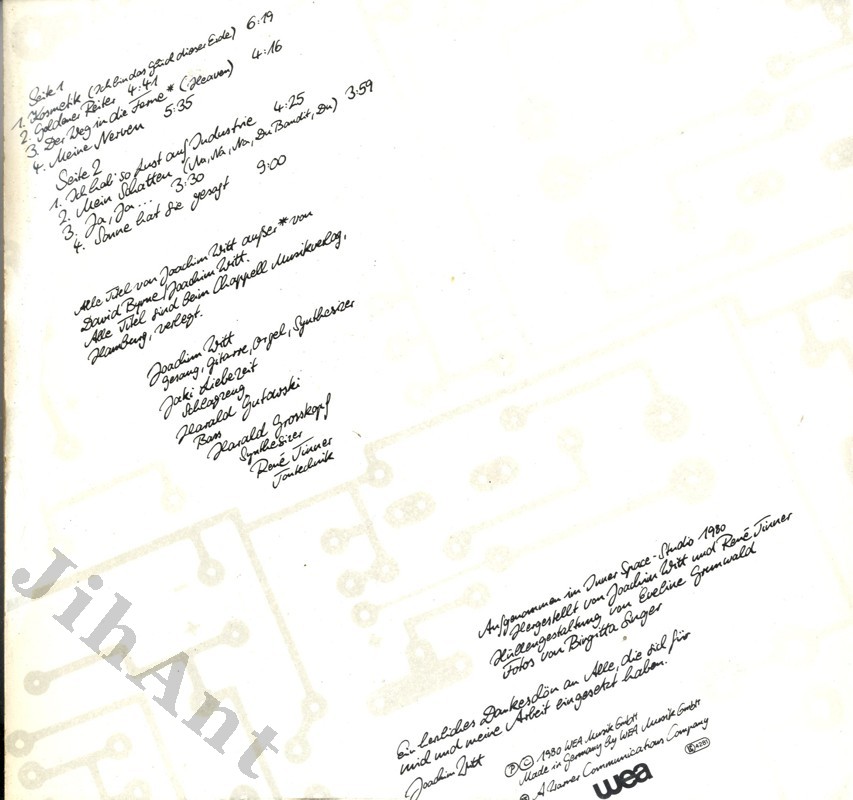 Seite 1
1. Kosmetik (Ich bin das Glück dieser Erde) 6:19
2. Goldener Reiter 4:41
3. Der Weg in die Ferne * (Heaven) 4:16
4. Meine Nerven 5:35
Seite 2
1. Ich hab so Lust auf Industrie 4:25
2. Mein Schatten (Na, Na, Na, Du Bandit, Du) 3:59
3. Ja, Ja... 3:30
4. Sonne hat sie gesagt 9:00
Alle Titel von Joachim Witt außer * von
David Byrne/Joachim Witt.
Alle Titel sind beim Chappell Musikverlag,
Hamburg, verlegt.
Joachim Witt
Gesang, Gitarre, Orgel, Synthesizer
Jaki Liebezeit
Schlagzeug
Harald Gutowski
Bass
Harald Grosskopf
Synthesizer
René Tinner
Tontechnik
Aufgenommen im Inner Space-Studio 1980
Hergestellt von Joachim Witt und René Tinner
Hüllengestaltung von Eveline Grunwald
Fotos von Birgitta Suger
Ein herzliches Dankeschön an Alle, die sich für
mich und meine Arbeit eingesetzt haben.
Joachim Witt
Ⓟ Ⓒ 1980 WEA Musik GmbH
Made in Germany by WEA Musik GmbH
A Warner Communications Company
wea
JihAnt